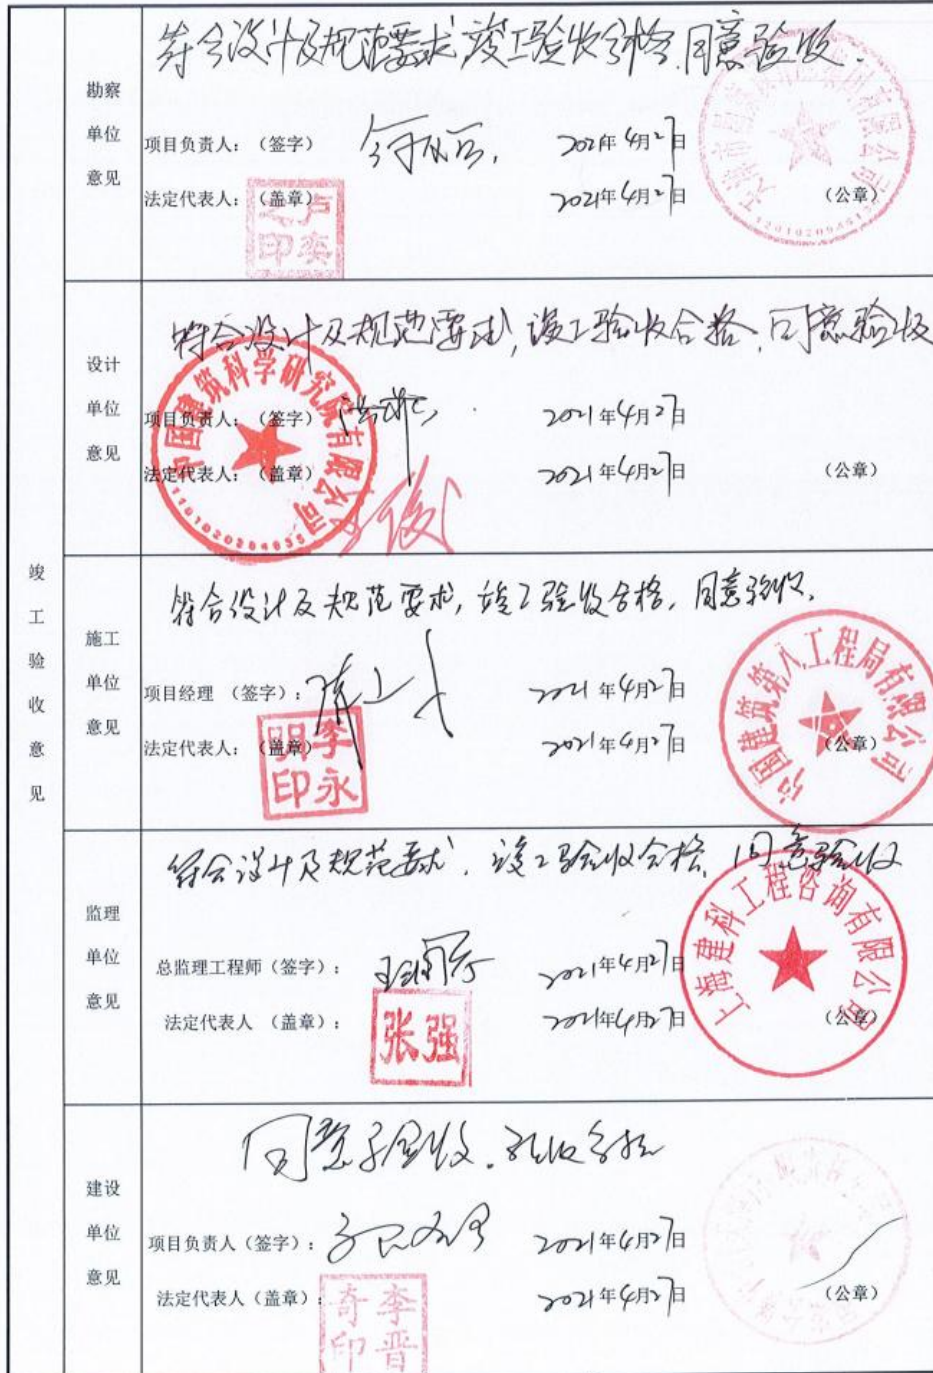 竣工验收意见
勘察单位意见
符合设计及规范要求,竣工验收合格,同意验收.
项目负责人:(签字) 2021年4月27日
法定代表人:(盖章) 2021年4月27日 (公章)
卢奕之印
设计单位意见
符合设计及规范要求,竣工验收合格,同意验收
项目负责人:(签字) 2021年4月27日
法定代表人:(盖章) 2021年4月27日 (公章)
中国建筑科学研究院有限公司
施工单位意见
符合设计及规范要求,竣工验收合格,同意验收.
项目经理 (签字): 2021年4月27日
法定代表人:(盖章) 2021年4月27日 (公章)
李永明印
中国建筑第八工程局有限公司
监理单位意见
符合设计及规范要求,竣工验收合格,同意验收
总监理工程师(签字): 2021年4月27日
法定代表人 (盖章): 2021年4月27日 (公章)
张强
上海建科工程咨询有限公司
建设单位意见
同意验收.验收合格
项目负责人(签字): 2021年4月27日
法定代表人(盖章): 2021年4月27日 (公章)
李晋奇印